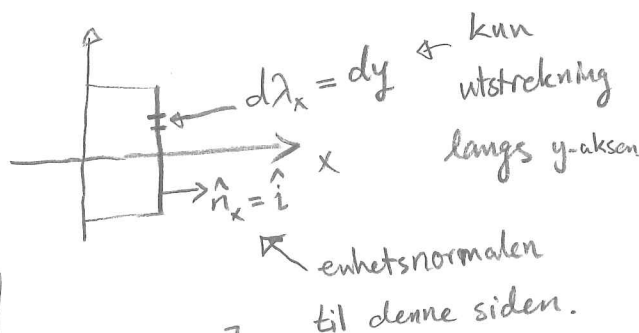 dλₓ = dy ← kun
utstrekning
langs y-aksen
x
n̂ₓ = î
enhetsnormalen
til denne siden.